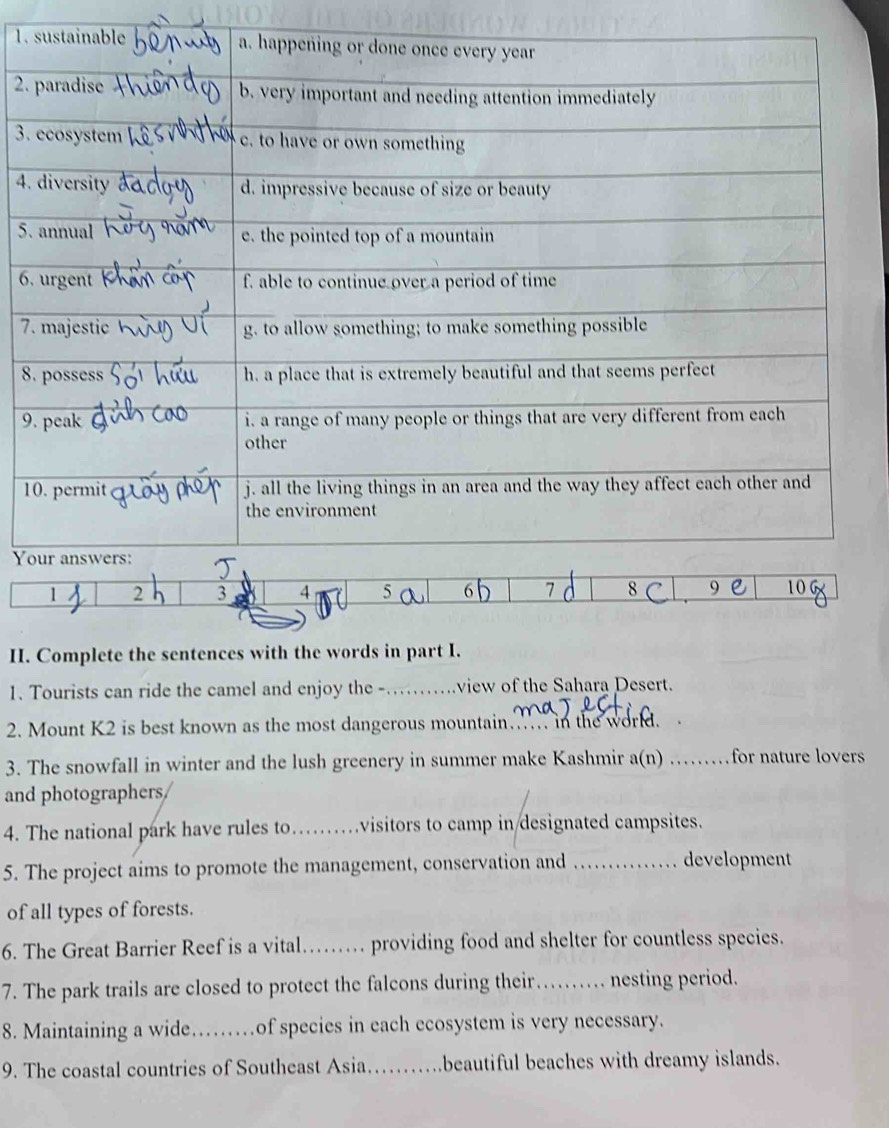 1. sustainable bền vững a. happening or done once every year
2. paradise b. very important and needing attention immediately
3. ecosystem c. to have or own something
4. diversity d. impressive because of size or beauty
5. annual e. the pointed top of a mountain
6. urgent khẩn cấp f. able to continue over a period of time
7. majestic g. to allow something; to make something possible
8. possess h. a place that is extremely beautiful and that seems perfect
9. peak i. a range of many people or things that are very different from each
other
10. permit j. all the living things in an area and the way they affect each other and
the environment
Your answers:
1 f 2 h 3 J 4 5 a 6 b 7 d 8 c 9 e 10 g
II. Complete the sentences with the words in part I.
1. Tourists can ride the camel and enjoy the -...........view of the Sahara Desert.
majestic
2. Mount K2 is best known as the most dangerous mountain...... in the world.
3. The snowfall in winter and the lush greenery in summer make Kashmir a(n) .........for nature lovers
and photographers.
4. The national park have rules to..........visitors to camp in designated campsites.
5. The project aims to promote the management, conservation and ............... development
of all types of forests.
6. The Great Barrier Reef is a vital......... providing food and shelter for countless species.
7. The park trails are closed to protect the falcons during their.......... nesting period.
8. Maintaining a wide.........of species in each ecosystem is very necessary.
9. The coastal countries of Southeast Asia...........beautiful beaches with dreamy islands.